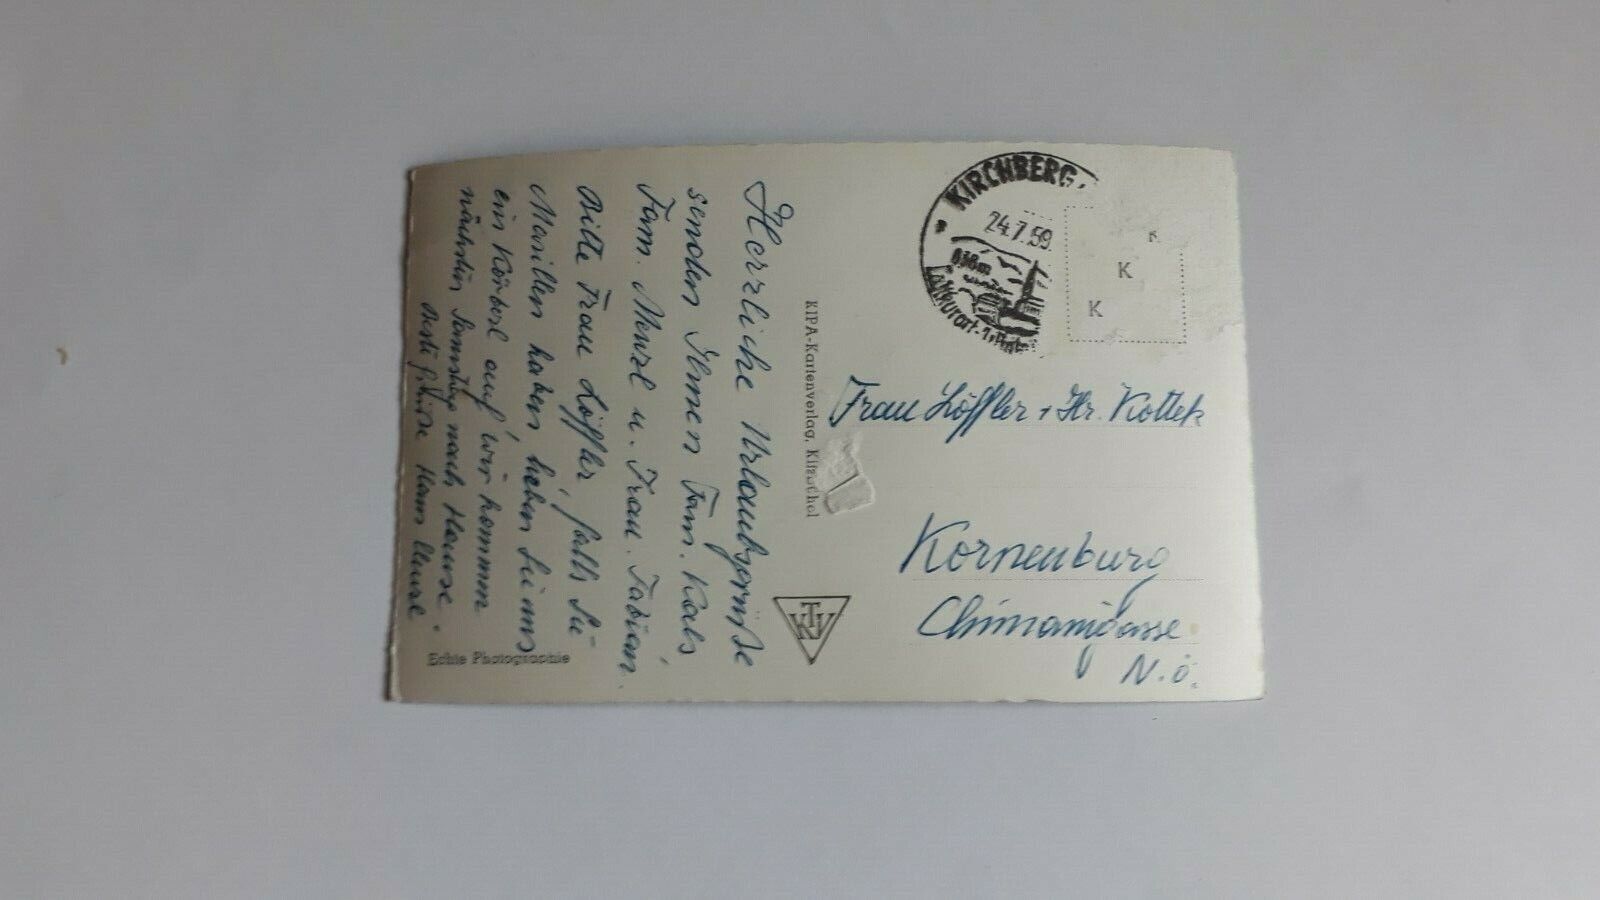 Herzliche Urlaubsgrüße
senden Ihnen Fam. Kals,
Fam. Menzl u. Frau. Fabian.
Bitte Frau Löffler, falls Sie
Marillen haben, heben Sie uns
ein Körberl auf, wir kommen
nächsten Samstag nach Hause.
Beste Grüße Hans
Echte Photographie
KIPA-Kartenverlag, Kitzbühel
KIRCHBERG
24.7.59
Luftkurort
K
K
K
Frau Löffler + Hr. Kottek
Kornenburg
Chimanigasse
N.ö.